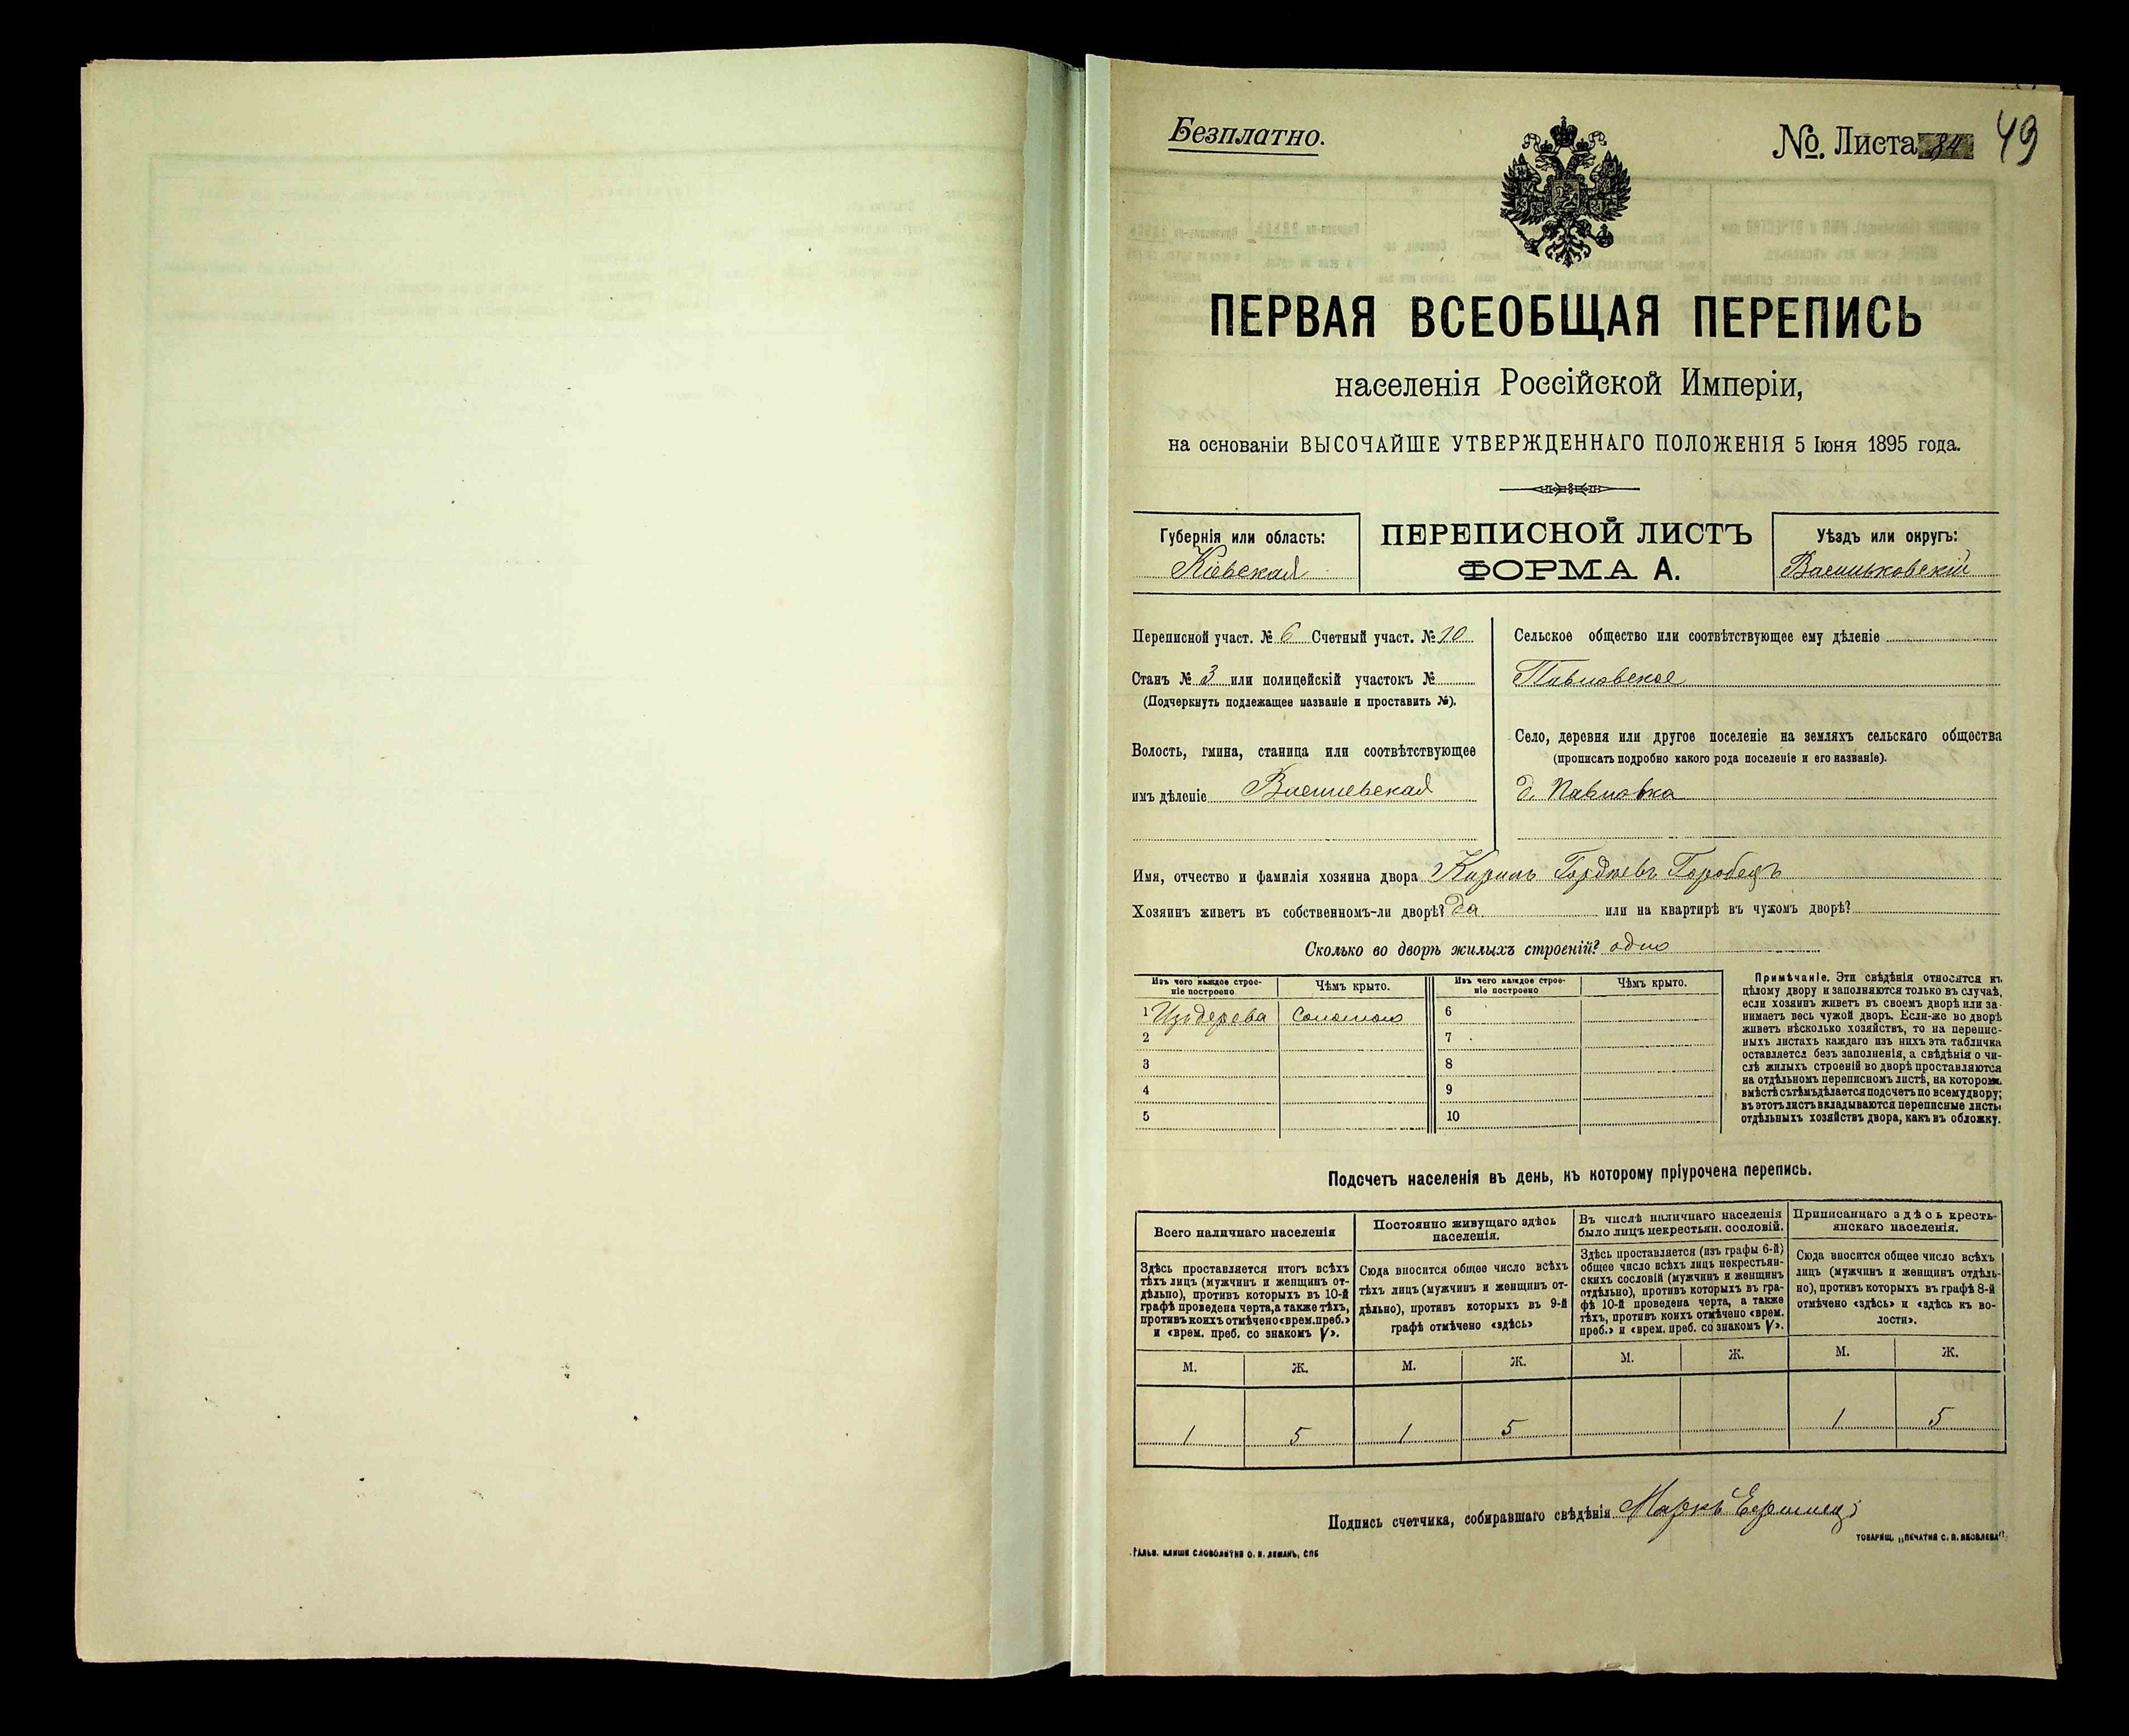 Безплатно.
№. Листа 84 49
ПЕРВАЯ ВСЕОБЩАЯ ПЕРЕПИСЬ
населенія Россійской Имперіи,
на основаніи ВЫСОЧАЙШЕ УТВЕРЖДЕННАГО ПОЛОЖЕНІЯ 5 Іюня 1895 года.
Губернія или область:
Кіевская
ПЕРЕПИСНОЙ ЛИСТЪ
ФОРМА А.
Уѣздъ или округъ:
Васильковскій
Переписной участ. № 6 Счетный участ. № 10
Станъ № 3 или полицейскій участокъ №
(Подчеркнуть подлежащее названіе и проставить №).
Волость, гмина, станица или соотвѣтствующее
имъ дѣленіе
Сельское общество или соотвѣтствующее ему дѣленіе
Павловское
Село, деревня или другое поселеніе на земляхъ сельскаго общества
(прописать подробно какого рода поселеніе и его названіе).
д. Павловка
Имя, отчество и фамилія хозяина двора Кирилъ Гордѣевъ Горобецъ
Хозяинъ живетъ въ собственномъ-ли дворѣ? да или на квартирѣ въ чужомъ дворѣ?
Сколько во дворѣ жилыхъ строеній? одно
Изъ чего каждое строе-
ніе построено
Чѣмъ крыто.
Изъ чего каждое строе-
ніе построено
Чѣмъ крыто.
1 Изъ дерева Соломою 6
2 7
3 8
4 9
5 10
Примѣчаніе. Эти свѣдѣнія относятся къ
цѣлому двору и заполняются только въ случаѣ,
если хозяинъ живетъ въ своемъ дворѣ или за-
нимаетъ весь чужой дворъ. Если-же во дворѣ
живетъ нѣсколько хозяйствъ, то на перепис-
ныхъ листахъ каждаго изъ нихъ эта табличка
оставляется безъ заполненія, а свѣдѣнія о чи-
слѣ жилыхъ строеній во дворѣ проставляются
на отдѣльномъ переписномъ листѣ, на которомъ
вмѣстѣ съ тѣмъ дѣлается подсчетъ по всему двору;
въ этотъ листъ вкладываются переписные листы
отдѣльныхъ хозяйствъ двора, какъ въ обложку.
Подсчетъ населенія въ день, къ которому пріурочена перепись.
Всего наличнаго населенія
Здѣсь проставляется итогъ всѣхъ
тѣхъ лицъ (мужчинъ и женщинъ от-
дѣльно), противъ которыхъ въ 10-й
графѣ проведена черта, а также тѣхъ,
противъ коихъ отмѣчено «врем. преб.»
и «врем. преб. со знакомъ V».
Постоянно живущаго здѣсь
населенія.
Сюда вносится общее число всѣхъ
тѣхъ лицъ (мужчинъ и женщинъ от-
дѣльно), противъ которыхъ въ 9-й
графѣ отмѣчено «здѣсь»
Въ числѣ наличнаго населенія
было лицъ некрестьян. сословій.
Здѣсь проставляется (изъ графы 6-й)
общее число всѣхъ лицъ некрестьян-
скихъ сословій (мужчинъ и женщинъ
отдѣльно), противъ которыхъ въ гра-
фѣ 10-й проведена черта, а также
тѣхъ, противъ коихъ отмѣчено «врем.
преб.» и «врем. преб. со знакомъ V».
Приписаннаго здѣсь кресть-
янскаго населенія.
Сюда вносится общее число всѣхъ
лицъ (мужчинъ и женщинъ отдѣль-
но), противъ которыхъ въ графѣ 8-й
отмѣчено «здѣсь» и «здѣсь въ во-
лости».
М. Ж. М. Ж. М. Ж. М. Ж.
1 5 1 5 1 5
Подпись счетчика, собиравшаго свѣдѣнія Маркъ
ТОВАРИЩ. „ПЕЧАТНЯ С. П. ЯКОВЛЕВА"
ГАЛЬВ. КЛИШЕ СЛОВОЛИТНИ О. И. ЛЕМАНЪ, СПБ